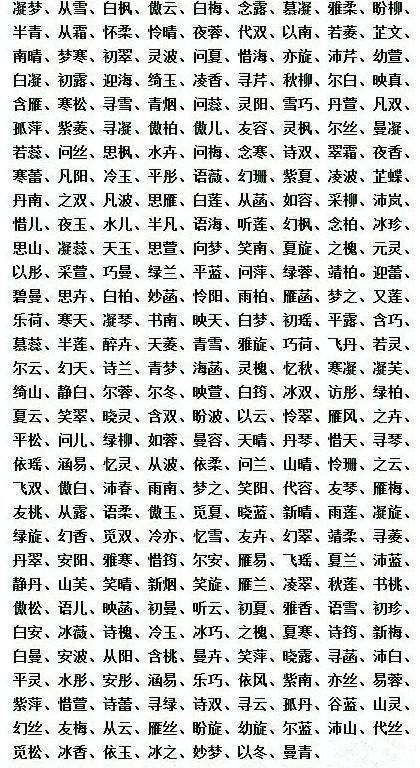 凝梦、从雪、白枫、傲云、白梅、念露、慕凝、雅柔、盼柳、
半青、从霜、怀柔、怜晴、夜蓉、代双、以南、若菱、芷文、
南晴、梦寒、初翠、灵波、问夏、惜海、亦旋、沛芹、幼萱、
白凝、初露、迎海、绮玉、凌香、寻芹、秋柳、尔白、映真、
含雁、寒松、寻雪、青烟、问蕊、灵阳、雪巧、丹萱、凡双、
孤萍、紫菱、寻凝、傲柏、傲儿、友容、灵枫、尔丝、曼凝、
若蕊、问丝、思枫、水卉、问梅、念寒、诗双、翠霜、夜香、
寒蕾、凡阳、冷玉、平彤、语薇、幻珊、紫夏、凌波、芷蝶、
丹南、之双、凡波、思雁、白莲、从菡、如容、采柳、沛岚、
惜儿、夜玉、水儿、半凡、语海、听莲、幻枫、念柏、冰珍、
思山、凝蕊、天玉、思萱、向梦、笑南、夏旋、之槐、元灵、
以彤、采萱、巧曼、绿兰、平蓝、问萍、绿蓉、靖柏。迎蕾、
碧曼、思卉、白柏、妙菡、怜阳、雨柏、雁菡、梦之、又莲、
乐荷、寒天、凝琴、书南、映天、白梦、初瑶、平露、含巧、
慕蕊、半莲、醉卉、天菱、青雪、雅旋、巧荷、飞丹、若灵、
尔云、幻天、诗兰、青梦、海菡、灵槐、忆秋、寒凝、凝芙、
绮山、静白、尔蓉、尔冬、映萱、白筠、冰双、访彤、绿柏、
夏云、笑翠、晓灵、含双、盼波、以云、怜翠、雁风、之卉、
平松、问儿、绿柳、如蓉、曼容、天晴、丹琴、惜天、寻琴、
依瑶、涵易、忆灵、从波、依柔、问兰、山晴、怜珊、之云、
飞双、傲白、沛春、雨南、梦之、笑阳、代容、友琴、雁梅、
友桃、从露、语柔、傲玉、觅夏、晓蓝、新晴、雨莲、凝旋、
绿旋、幻香、觅双、冷亦、忆雪、友卉、幻翠、靖柔、寻菱、
丹翠、安阳、雅寒、惜筠、尔安、雁易、飞瑶、夏兰、沛蓝、
静丹、山芙、笑晴、新烟、笑旋、雁兰、凌翠、秋莲、书桃、
傲松、语儿、映菡、初曼、听云、初夏、雅香、语雪、初珍、
白安、冰薇、诗槐、冷玉、冰巧、之槐、夏寒、诗筠、新梅、
白曼、安波、从阳、含桃、曼卉、笑萍、晓露、寻菡、沛白、
平灵、水彤、安彤、涵易、乐巧、依风、紫南、亦丝、易蓉、
紫萍、惜萱、诗蕾、寻绿、诗双、寻云、孤丹、谷蓝、山灵、
幻丝、友梅、从云、雁丝、盼旋、幼旋、尔蓝、沛山、代丝、
觅松、冰香、依玉、冰之、妙梦、以冬、曼青、